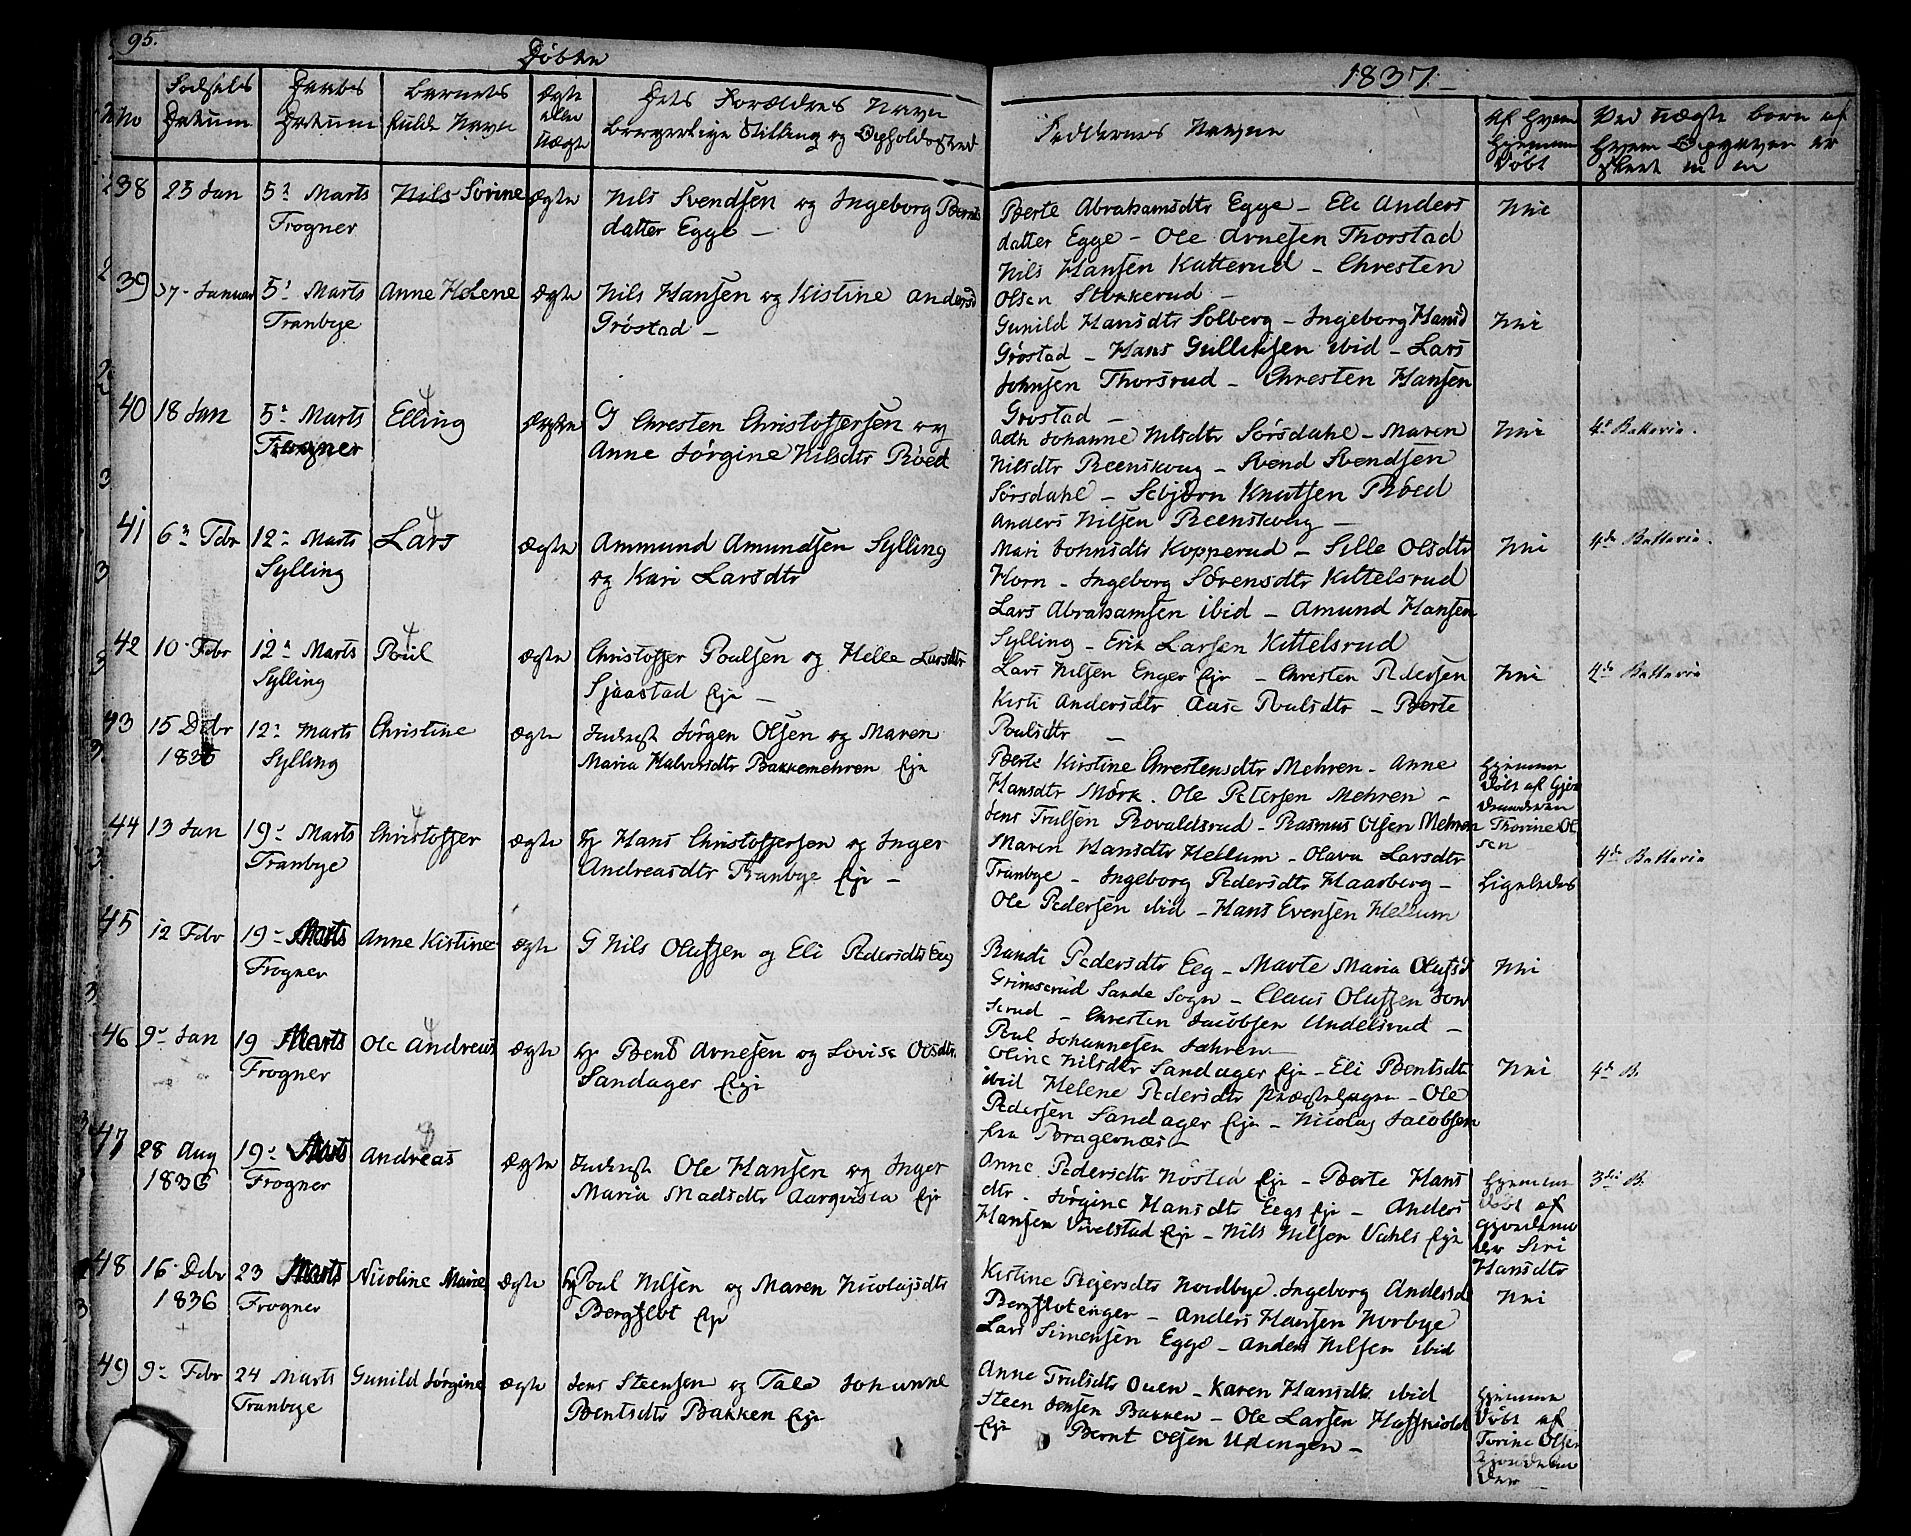 95.
Døbte
1837.
No
Fødsels Datum
Daabs Datum
Barnets fulde Navn
Ægte eller Uægte
Dets Forældres Navn
borgerlige Stilling og Opholdssted
Faddernes Navne
Af Hvem Hjemme Døbt
38 23 Jan 5te Marts Frogner Nils Sorine Ægte
Nils Svendsen og Ingeborg Berntsdatter Egge –
Berte Abrahamsdtr Egge – Eli Anders
datter Egge – Ole Arnesen Thorstad
Nils Hansen Katterud – Chresten
Olsen Stokkerud –
Nei
39 Januar 5te Marts Tranbye Anne Helene Ægte
Nils Hansen og Kistine Andersd
Gröstad –
Gunild Hansdtr Solberg – Ingeborg Hansd
Gröstad – Hans Gulliksen ibid – Lars
Johnsen Thorsrud – Chresten Hansen
Gröstad –
Nei
40 18 Jan 5te Marts Frogner Elling Ægte
G Chresten Christoffersen og
Anne Jørgine Nilsdtr Röed
Johanne Nilsdtr Sörsdahl – Maren
Nilsdtr Reenskoug – Svend Svendsen
Sörsdahl – Sebjørn Knutsen Röed
Anders Nilsen Reenskoug –
Nei
4de Batterie.
41 6te Febr 12te Marts Sylling Lars Ægte
Ammund Amundsen Sylling
og Kari Larsdtr
Mari Johnsdtr Kopperud – Sille Olsdtr
Horn – Ingeborg Sörensdtr Kittelsrud
Lars Abrahamsen ibid – Amund Hansen
Sylling – Erik Larsen Kittelsrud
Nei
4de Batterie.
42 10 Febr 12te Marts Sylling Poul Ægte
Christoffer Poulsen og Helle Larsdtr
Sjaastad Eje –
Lars Nilsen Enger Eje – Chresten Pedersen
Kisti Andersdtr Aase Poulsdtr – Berte
Poulsdtr –
Nei
4de Batterie
43 15 Debr 1836 12te Marts Sylling Christine Ægte
Inderst Jørgen Olsen og Maren
Maria Halvorsdtr Bakkemehren Eje
Berte Kirstine Chrestensdtr Mehren – Anne
Hansdtr Mörk. Ole Petersen Mehren –
Jens Trulsen Rovaldsrud – Rasmus Olsen Mehren
Hjemme
Døbt af Gjor
demoderen
Thorine Ol
sen –
44 13 Jan 19de Marts Tranbye Christoffer Ægte
Hans Christoffersen og Inger
Andreasdtr Tranbye Eje –
Maren Hansdtr Hellum – Olava Larsdtr
Tranbye – Ingeborg Pedersdtr Haarberg –
Ole Pedersen ibid – Hans Evensen Hellum
Ligeledes
4de Batterie
45 12 Febr 19de Marts Frogner Anne Kistine Ægte
G Nils Olufsen og Eli Pedersdtr Eeg
Randi Pedersdtr Eeg – Marte Maria Olufsd
Grimserud Sande Sogn – Claus Olufsen Jon
serud – Chresten Jacobsen Undelsrud –
Poul Johannesen Jahren
Nei
46 9de Jan 19 Marts Frogner Ole Andreas Ægte
Bent Arnesen og Lovise Olsdtr
Sandager Eje
Oline Nilsdtr Sandager Eje – Eli Bentsdtr
ibid Helene Pedersdtr Præstehagen – Ole
Pedersen Sandager Eje – Nicolay Jacobsen
fra Bragernæs –
Nei
4de B.
47 28 Aug 1836 19de Marts Frogner Andreas Ægte
Inderst Ole Hansen og Inger
Maria Madsdtr Aarqvisla Eje
Anne Pedersdtr Nöstea Eje – Berte Hans
dtr – Jørgine Hansdtr Eegs Eje – Anders
Hansen Vivelstad Eje – Nils Nilsen Vahls Eje
Hjemme
Døbt af
Gjordemo
der Siri
Hansdtr
3die B.
48 16 Debr 1836 23 Marts Frogner Nicoline Marie Ægte
Poul Nilsen og Maren Nicolajsdtr
Bergflot Eje
Kistine Reiersdtr Nordbye. Ingeborg Andersd
Bergflotenger – Anders Hansen Norbye
Lars Simensen Egge – Anders Nilsen ibid
Nei
49 9de Febr 24 Marts Tranbye Gunild Jørgine Ægte
Jens Steensen og Tale Johanne
Bentsdtr Bakken Eje
Anne Trulsdtr Ouen – Karen Hansdtr ibid
Steen Jensen Bakken – Ole Larsen Haffskiold
Eje Bernt Olsen Udengen –
Hjemme
Døbt af
Torine Olsen
Gjordemo
der